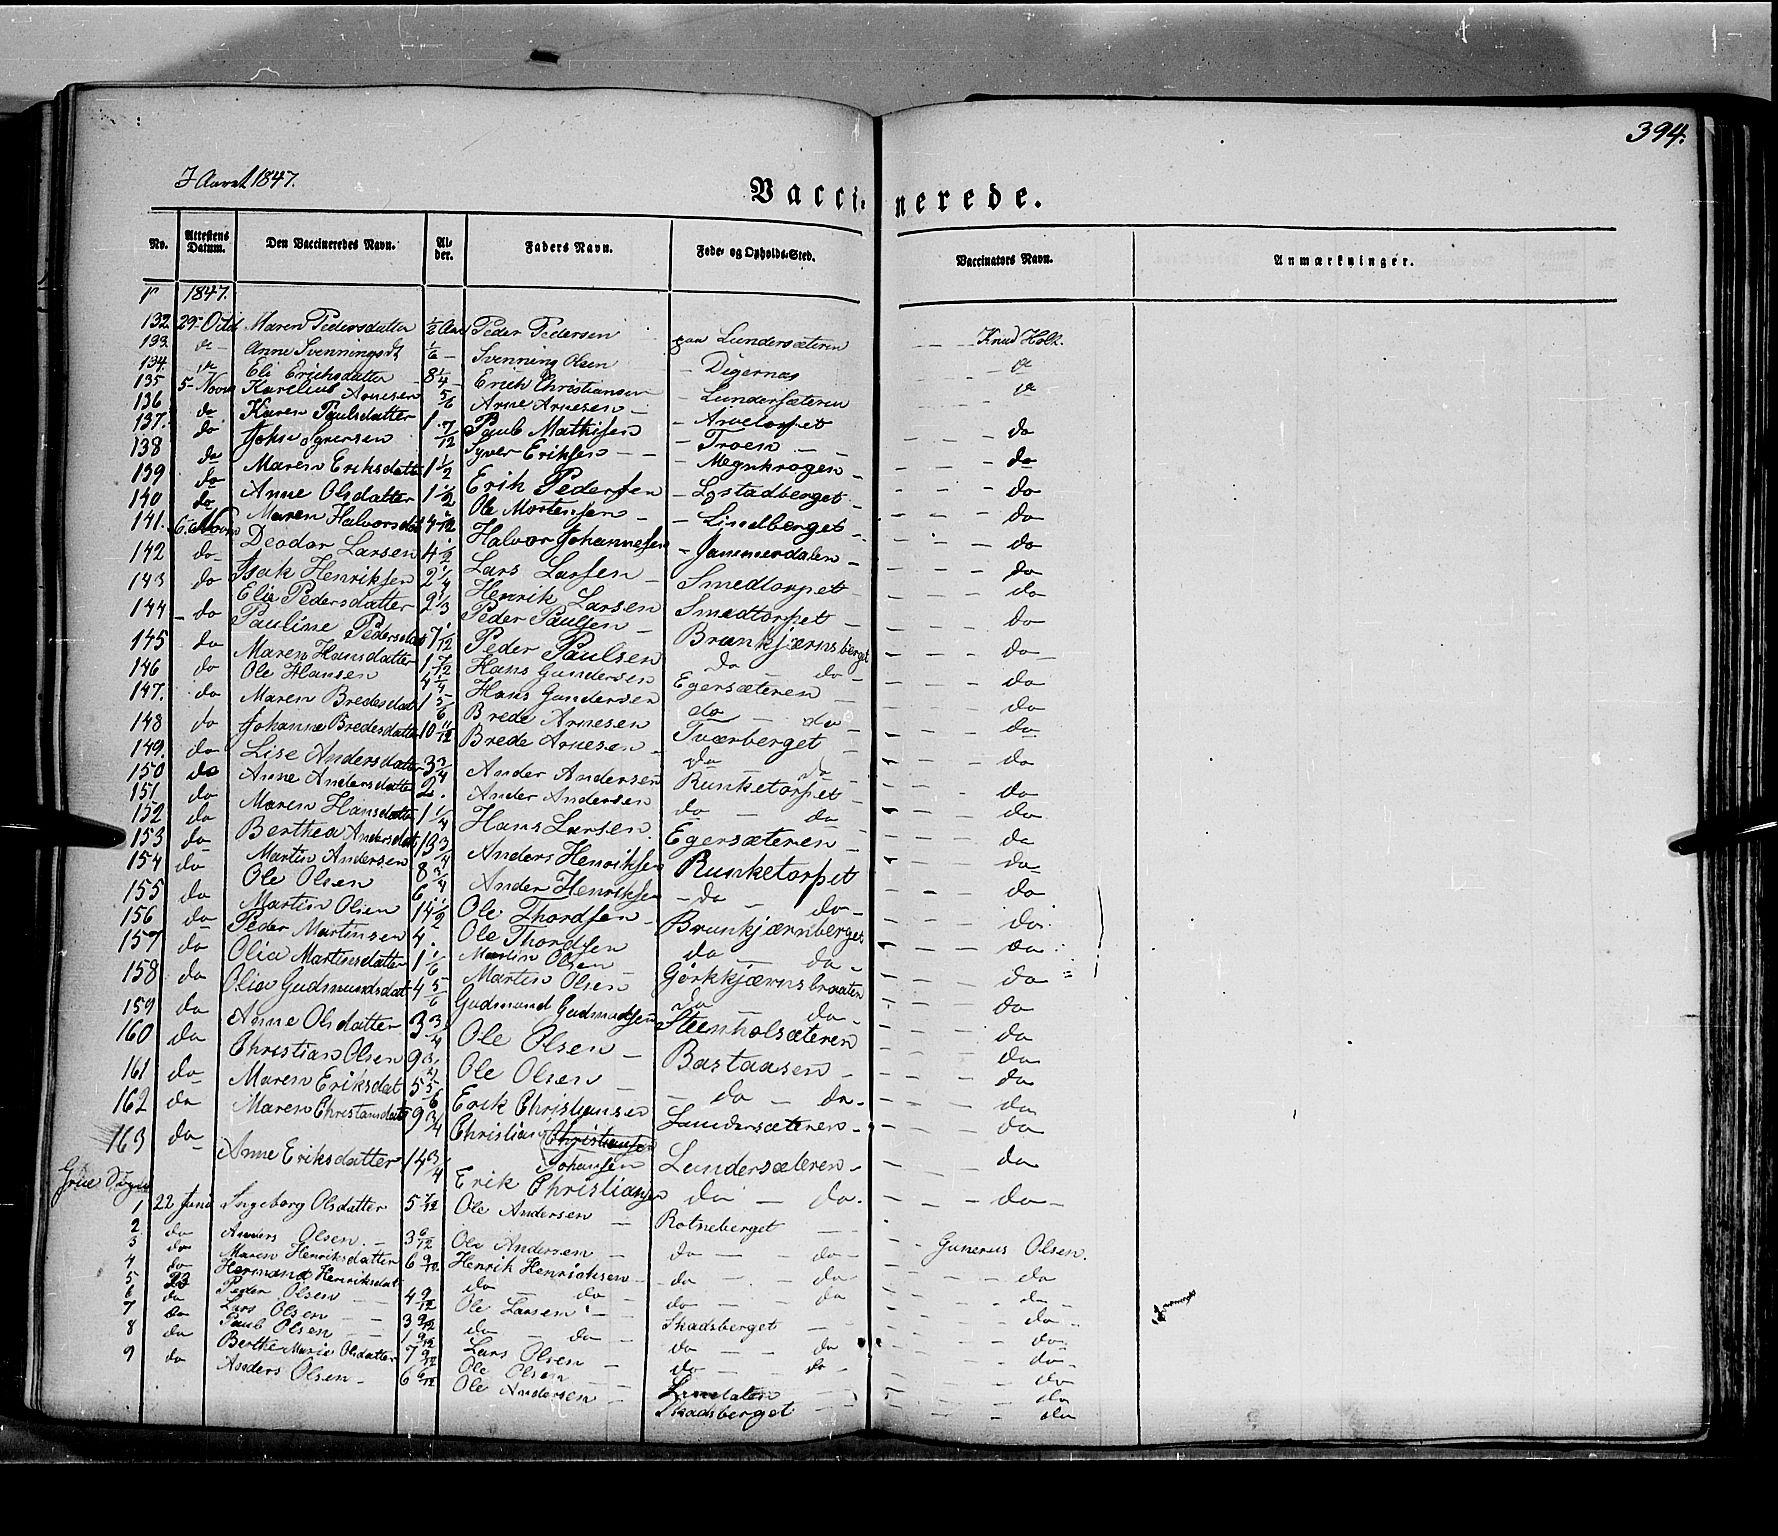 394.
I Aaret 1847.
Vaccinerede.
No. Attestens Datum. Den Vaccineredes Navn. Alder. Faders Navn. Føde- og Opholds-Sted. Vaccinators Navn. Anmærkninger.
1847.
132 29 Octd Maren Pedersdatter ½ Aar Peder Pedersen paa Lundersæteren Knud Holt.
133 Anne Svenningsdt 1/6 Svenning Olsen Digernæs
134 Eli Erichsdatter 8 1/4 Erich Christiansen Lundersæteren
135 5 Novm Karelius Arnesen 5/6 Arne Arnesen Arvetorpet do
136 do Karen Paulsdatter 1 7/12 Paul Mathisen Troen do
137 do Johs Syversen Syver Eriksen Megnkrogen do
138 do Maren Eriksdatter 1 1/2 Erik Pedersen Løstadberget do
139 do Anne Olsdatter 1 1/2 Ole Mortensen Lindberget do
140 do Maren Halvorsdat 4 1/12 Halvor Johannesen Jammerdalen do
141. 6 Novm Deodor Larsen 4 1/2 Lars Larsen Smedtorpet do
142 do Isak Henriksen 2 1/4 Henrik Larsen Smedtorpet do
143 do Elie Pedersdatter 2 1/3 Peder Paulsen Brunkjærnsberget do
144 do Pauline Pedersdat 7 1/12 Peder Paulsen do do do
145 do Maren Hansdatter 1 7/12 Hans Gundersen Egersæteren do
146 do Ole Hansen 4 1/4 Hans Gundersen do do do
147. do Maren Bredesdat 1 5/6 Brede Arnesen Tværberget do
148 do Johanne Bredesdatter 10 11/12 Brede Arnesen do do do
149. do Lise Andersdatter 3 3/4 Ander Andersen Runketorpet do
150 do Anne Andersdatter 2. Ander Andersen do do do
151 do Maren Hansdatter 1 1/4 Hans Larsen Egersæteren do
152 do Berthea Andersdat 13 3/4 Anders Henriksen Runketorpet do
153 do Martin Andersen 8 3/4 Ander Henriksen do do do
154 do Ole Olsen 6 Ole Thordsen Brunkjærnberget do
155 do Martin Olsen 14 1/2 Ole Thordsen do do do
156 do Peder Martinsen 4. Martin Olsen Gjørkkjærnsbraaten do
157 do Olia Martinsdatter 1 1/6 Martin Olsen do do do
158 do Olia Gudmundsdat 4 5/6 Gudmund Gudmundsen Steenholsæteren do
159 do Anne Olsdatter 3 3/4 Ole Olsen Bastaasen do
160 do Christian Olsen 9 3/4 Ole Olsen do do do
161 do Maren Eriksdat 5 5/6 Erik Christiansen Lundersæteren do
162 do Maren Christiansdatt 9 3/4 Christian Christiansen Johansen Lundersæteren do
163 do Anne Eriksdatter 14 3/4 Erik Christiansen do do do
Grue
1 22 Juni Ingeborg Olsdatter 5 7/12 Ole Andersen Rotneberget Gunerus Olsen.
2 do Anders Olsen 3 6/12 Ole Andersen do do do
3 do Maren Henriksdatter 6 9/12 Henrik Henrichsen do do do
4 do Hermana Henriksdat do do do do do
5 23 Peder Olsen 4 9/12 Ole Larsen Skadsberget do
6 do Lars Olsen 3 9/12 do do do do do
7 do Paul Olsen 1 9/12 Lars Olsen do do do
8 do Berthe Marie Olsdatter 7 9/12 Ole Olsen Linedalen do
9 do Anders Olsen 6 6/12 Ole Andersen Skadsberget do